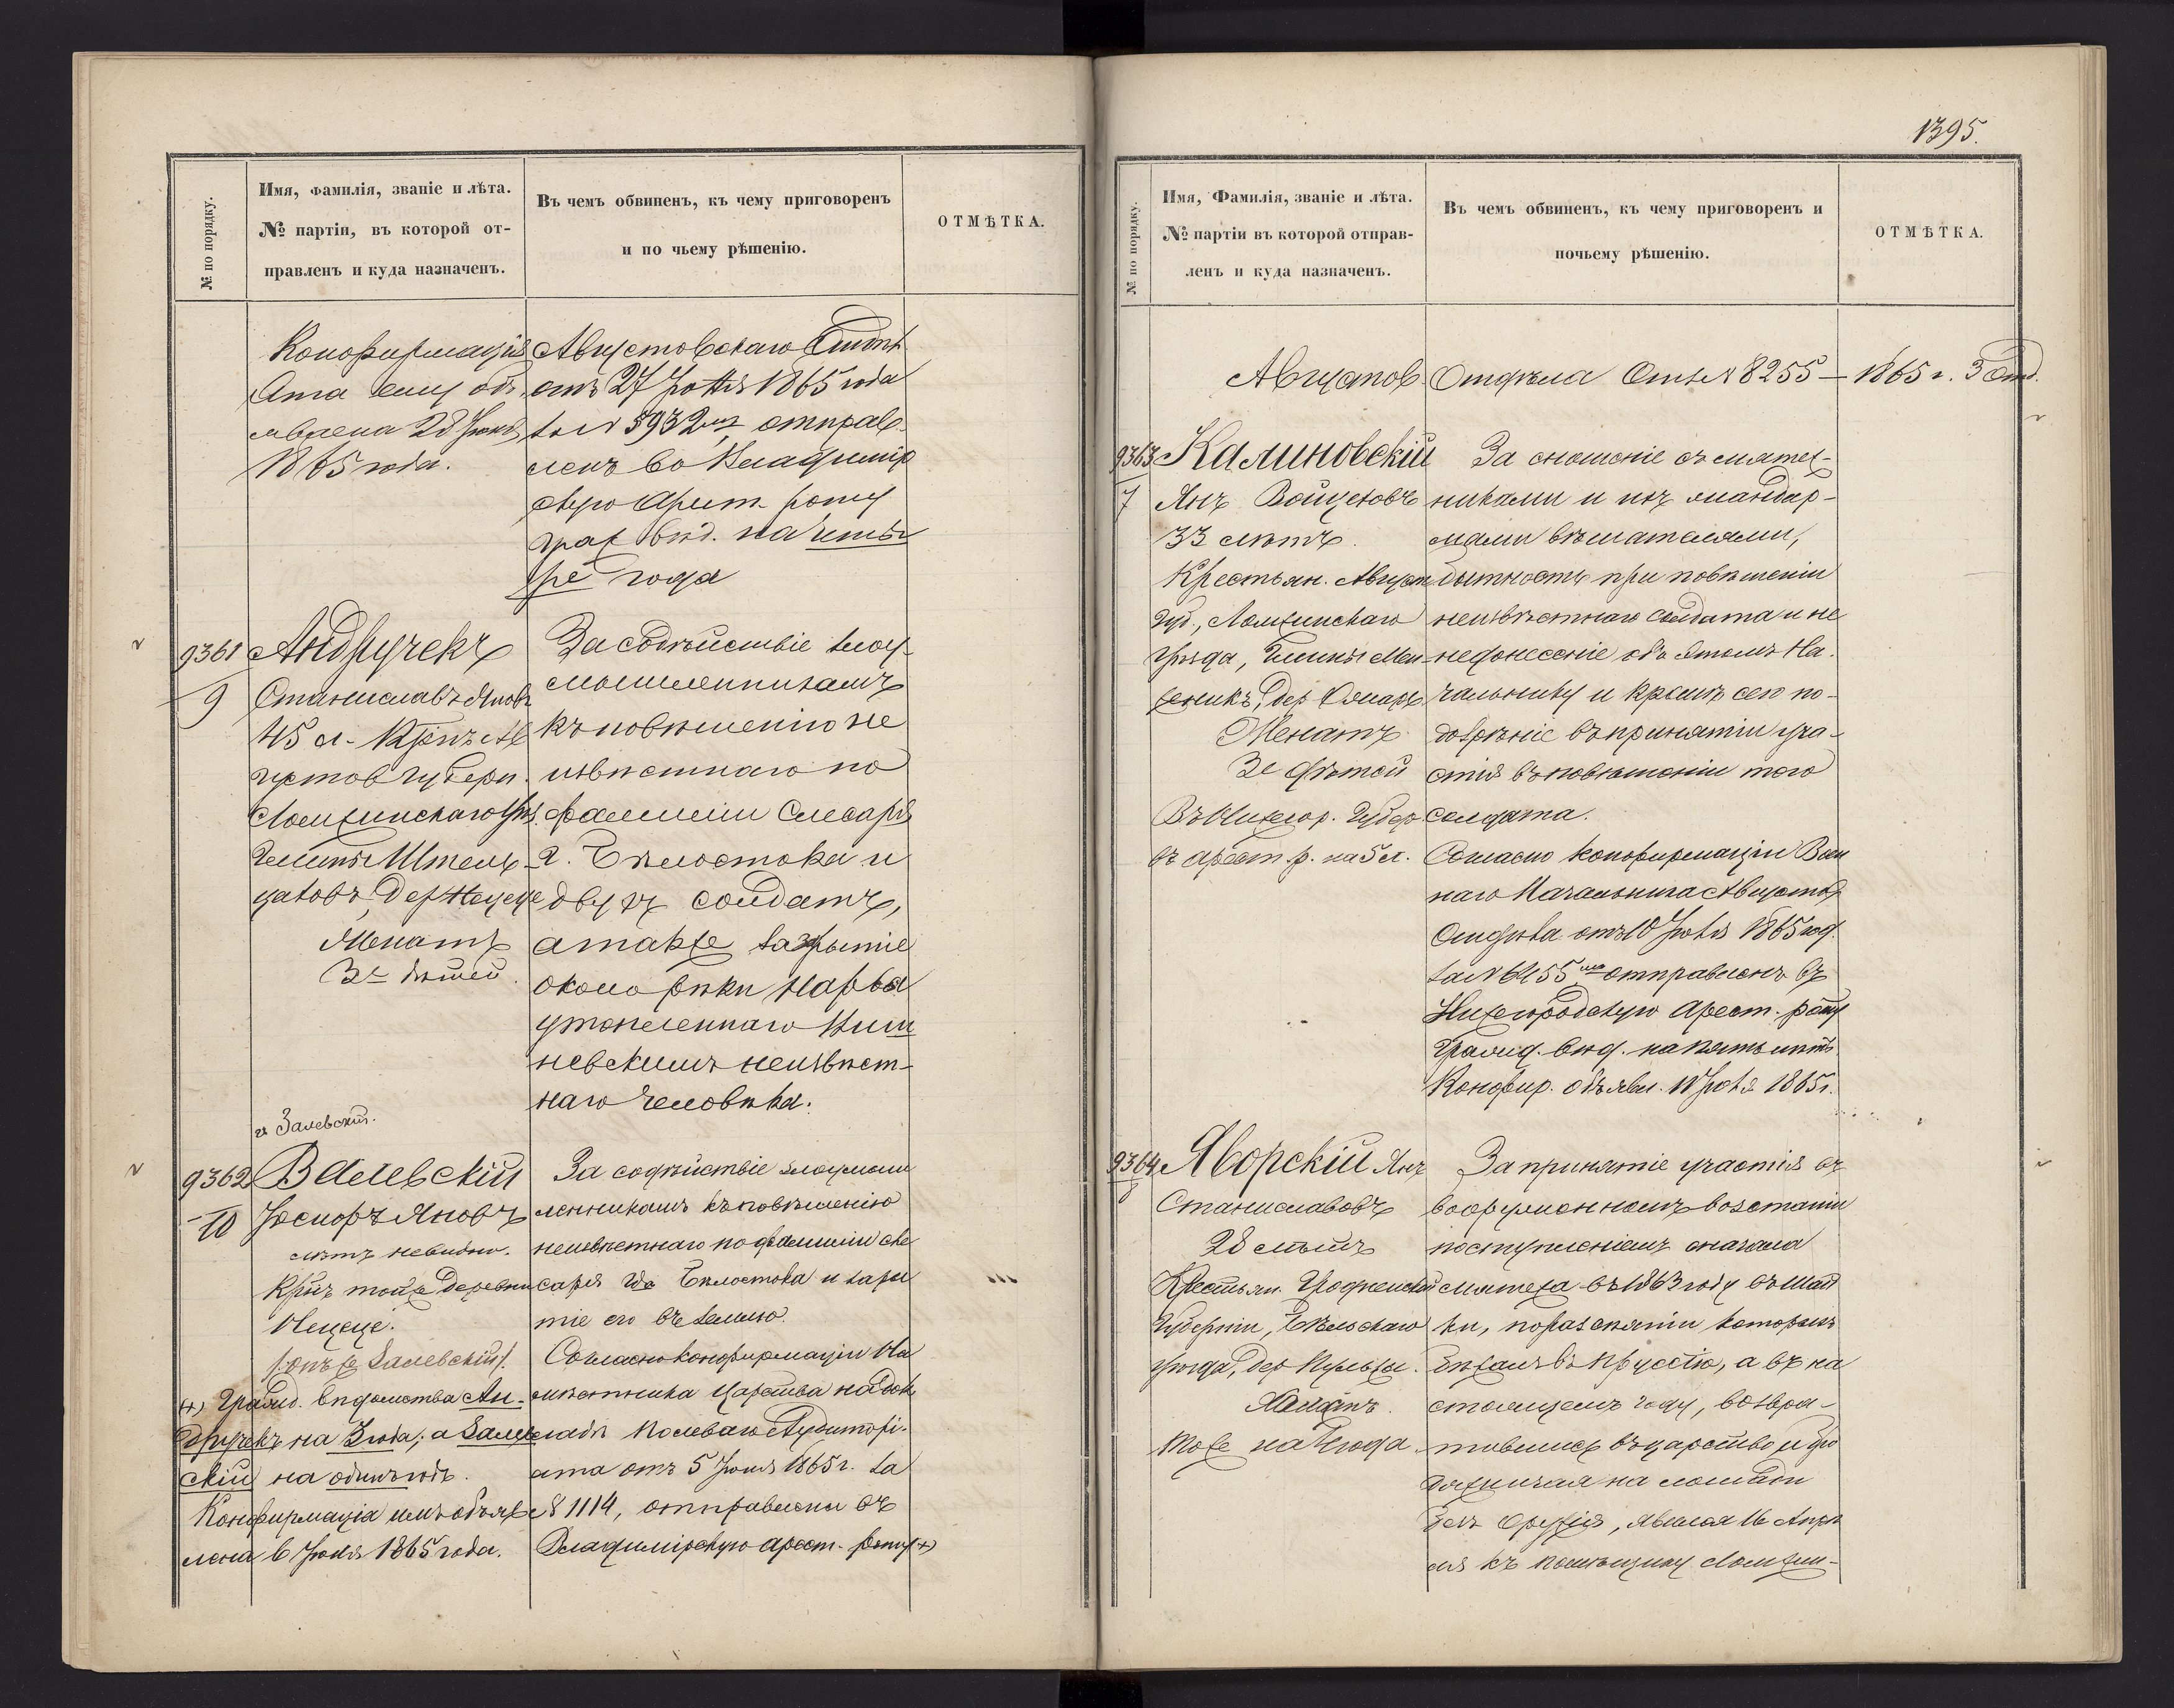 1395.
№ по порядку.
Имя, фамилія, званіе и лѣта.
№ партіи, въ которой от-
правленъ и куда назначенъ.
Въ чемъ обвиненъ, къ чему приговоренъ
и по чьему рѣшенію.
ОТМѢТКА.
Конфирмація
ему объ-
явлена 28 Іюня
1865 года.
Августовскаго Отдѣ
отъ 27 1865 года
за № 5932 отправ-
ленъ во Владимір
скую Арест. роту
граж. вѣд. на четы
ре года
9361
9
Андручекъ
Станиславъ Яновъ
45 л. Кр-нъ Ав
густов губерн.
Ломжинскаго уѣз.
Гмины
дер
Женатъ
3е дѣтей.
За содѣйствіе злоу-
мышленникамъ
къ повѣшенію не
извѣстнаго по
фамиліи Слесаря
г. Бѣлостока и
двухъ солдатъ,
а также зарытіе
около рѣки Нарвы
утопленнаго
невскимъ неизвѣст-
наго человѣка.
и Залевскій.
9362
10
Валевскій
Іосифъ Яновъ
лѣтъ не видно.
Кр-нъ той же деревни
онъ же Залевскій
+) Гражд. вѣдомства Ан-
дручекъ на 3 года; а Залев
скій на одинъ годъ.
Конфирмація имъ объяв
лена 6 1865 года.
За содѣйствіе злоумыш
ленникамъ къ повѣшенію
неизвѣстнаго по фамиліи сле
саря изъ Бѣлостока и зары
тіе его въ землю.
Согласно конфирмаціи На
мѣстника Царства на док
ладѣ Полеваго Аудиторі-
ата отъ 5 1865 г. за
№ 1114, отправлены въ
Владимірскую арест. роту +)
№ по порядку.
Имя, Фамилія, званіе и лѣта.
№ партіи въ которой отправ-
ленъ и куда назначенъ.
Въ чемъ обвиненъ, къ чему приговоренъ и
почьему рѣшенію.
ОТМѢТКА.
Августов. Отдѣла 8255 — 1865 г. 3 Отд.
9363
7
Калиновскій
Янъ Войцеховъ
33 лѣтъ.
Крестьян. Август
губ., Ломжинскаго
уѣзда, Гмины
дер.
Женатъ
3е дѣтей
Въ Нижегор. Губер
въ арест. р. на 5 л.
За сношеніе съ мятеж-
никами и ихъ жандар-
мами вѣшателями,
бытность при повѣшеніи
неизвѣстнаго солдата и не
недонесеніе объ этомъ На-
чальнику и кромѣ сего по-
дозрѣніе въ принятіи уча-
стія въ повѣшеніи того
солдата.
Согласно конфирмаціи Воен
наго Начальника Августов
Отдѣла отъ 10 1865 год.
за № отправленъ въ
Нижегородскую Арест. роту
Гражд. вѣд. на пять лѣтъ.
Конфир. объявл. 1865 г.
9364
8
Яворскій Янъ
Станиславовъ
28 лѣтъ
Крестьян. Гродненской
Губерніи, Бѣльскаго
уѣзда, дер.
Женатъ.
Тоже на года.
За принятіе участія въ
вооруженномъ возстаніи
поступленіемъ сначала
мятежа въ 1863 году въ шай
ки, по разсѣяніи которыхъ
бѣжалъ въ Пруссію, а въ на
стоящемъ году, возвра-
тившись въ царство и
на лошади
безъ оружія, явился 16 Апрѣ
ля къ помѣщику Ломжин-